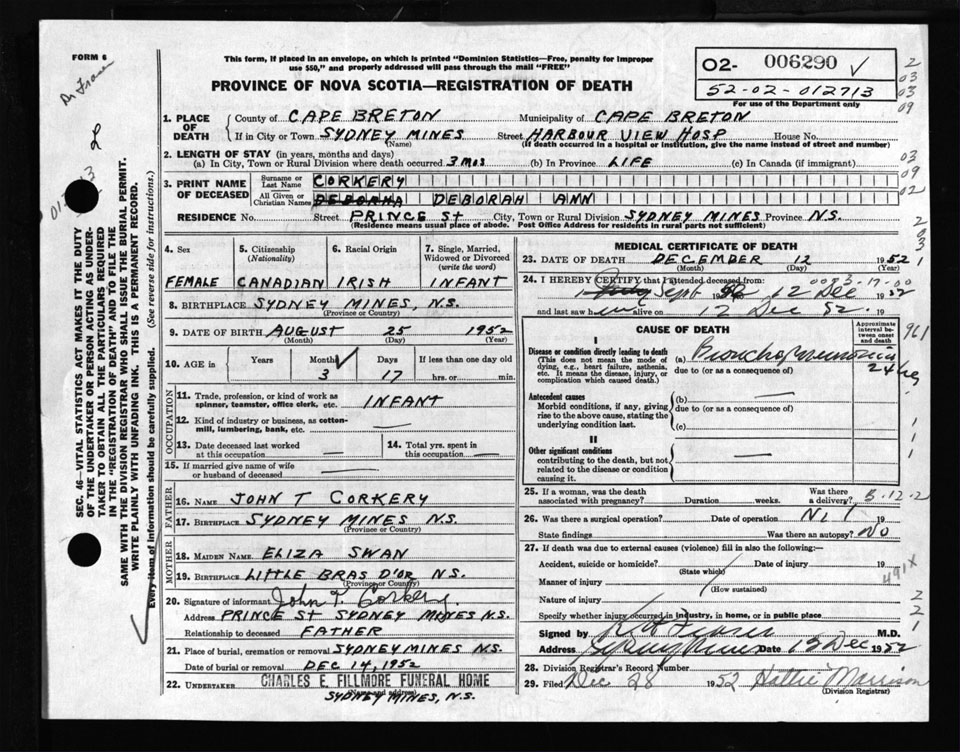 FORM 6
This form, if placed in an envelope, on which is printed "Dominion Statistics—Free, penalty for improper
use $50," and properly addressed will pass through the mail "FREE"
PROVINCE OF NOVA SCOTIA—REGISTRATION OF DEATH
O2- 006290 ✓
52-02-012713
For use of the Department only
1. PLACE OF DEATH
County of CAPE BRETON Municipality of CAPE BRETON
If in City or Town SYDNEY MINES Street HARBOUR VIEW HOSP House No.
(Name) (If death occurred in a hospital or institution, give the name instead of street and number)
2. LENGTH OF STAY (in years, months and days)
(a) In City, Town or Rural Division where death occurred 3 mos (b) In Province LIFE (c) In Canada (if immigrant)
3. PRINT NAME OF DECEASED
Surname or Last Name CORKERY
All Given or Christian Names DEBORHA DEBORAH ANN
RESIDENCE No. Street PRINCE ST City, Town or Rural Division SYDNEY MINES Province N.S.
(Residence means usual place of abode. Post Office Address for residents in rural parts not sufficient)
4. Sex
FEMALE
5. Citizenship (Nationality)
CANADIAN
6. Racial Origin
IRISH
7. Single, Married, Widowed or Divorced (write the word)
INFANT
8. BIRTHPLACE SYDNEY MINES, N.S.
(Province or Country)
9. DATE OF BIRTH AUGUST 25 1952
(Month) (Day) (Year)
10. AGE in
Years Months Days If less than one day old
3 17 hrs. or min.
OCCUPATION
11. Trade, profession, or kind of work as spinner, teamster, office clerk, etc. INFANT
12. Kind of industry or business, as cotton-mill, lumbering, bank, etc. —
13. Date deceased last worked at this occupation —
14. Total yrs. spent in this occupation —
15. If married give name of wife or husband of deceased —
FATHER
16. NAME JOHN T CORKERY
17. BIRTHPLACE SYDNEY MINES N.S.
(Province or Country)
MOTHER
18. MAIDEN NAME ELIZA SWAN
19. BIRTHPLACE LITTLE BRAS D'OR N.S.
(Province or Country)
20. Signature of informant John T. Corkery.
Address PRINCE ST SYDNEY MINES N.S.
Relationship to deceased FATHER
21. Place of burial, cremation or removal SYDNEY MINES N.S.
Date of burial or removal DEC 14, 1952
22. UNDERTAKER CHARLES E. FILLMORE FUNERAL HOME
(Name and address)
SYDNEY MINES, N.S.
MEDICAL CERTIFICATE OF DEATH
23. DATE OF DEATH DECEMBER 12 1952
(Month) (Day) (Year)
24. I HEREBY CERTIFY that I attended deceased from:
Sept 12 Dec 1952
and last saw h alive on 12 Dec 52. 19
CAUSE OF DEATH
Approximate interval between onset and death
I
Disease or condition directly leading to death
(This does not mean the mode of dying, e.g., heart failure, asthenia, etc. It means the disease, injury, or complication which caused death.)
(a) Bronchopneumonia
24 hrs
due to (or as a consequence of)
Antecedent causes
Morbid conditions, if any, giving rise to the above cause, stating the underlying condition last.
(b) —
due to (or as a consequence of)
(c)
II
Other significant conditions
contributing to the death, but not related to the disease or condition causing it.
25. If a woman, was the death associated with pregnancy? Duration weeks. Was there a delivery?
3-12-2
26. Was there a surgical operation? Date of operation Nil 19
State findings Was there an autopsy? No
27. If death was due to external causes (violence) fill in also the following:—
Accident, suicide or homicide? Date of injury 19
(State which)
Manner of injury
(How sustained)
Nature of injury
Specify whether injury occurred in industry, in home, or in public place
491X
Signed by M.D.
Address Sydney Mines Date 13 Dec 1952
28. Division Registrar's Record Number
29. Filed Dec 28 1952 Hattie Morrison
(Division Registrar)
SEC. 46—VITAL STATISTICS ACT MAKES IT THE DUTY
OF THE UNDERTAKER OR PERSON ACTING AS UNDER-
TAKER TO OBTAIN ALL THE PARTICULARS REQUIRED
IN THE "REGISTRATION OF DEATH" AND TO FILE THE
SAME WITH THE DIVISION REGISTRAR WHO SHALL ISSUE THE BURIAL PERMIT.
WRITE PLAINLY WITH UNFADING INK. THIS IS A PERMANENT RECORD.
Every item of information should be carefully supplied. (See reverse side for instructions.)